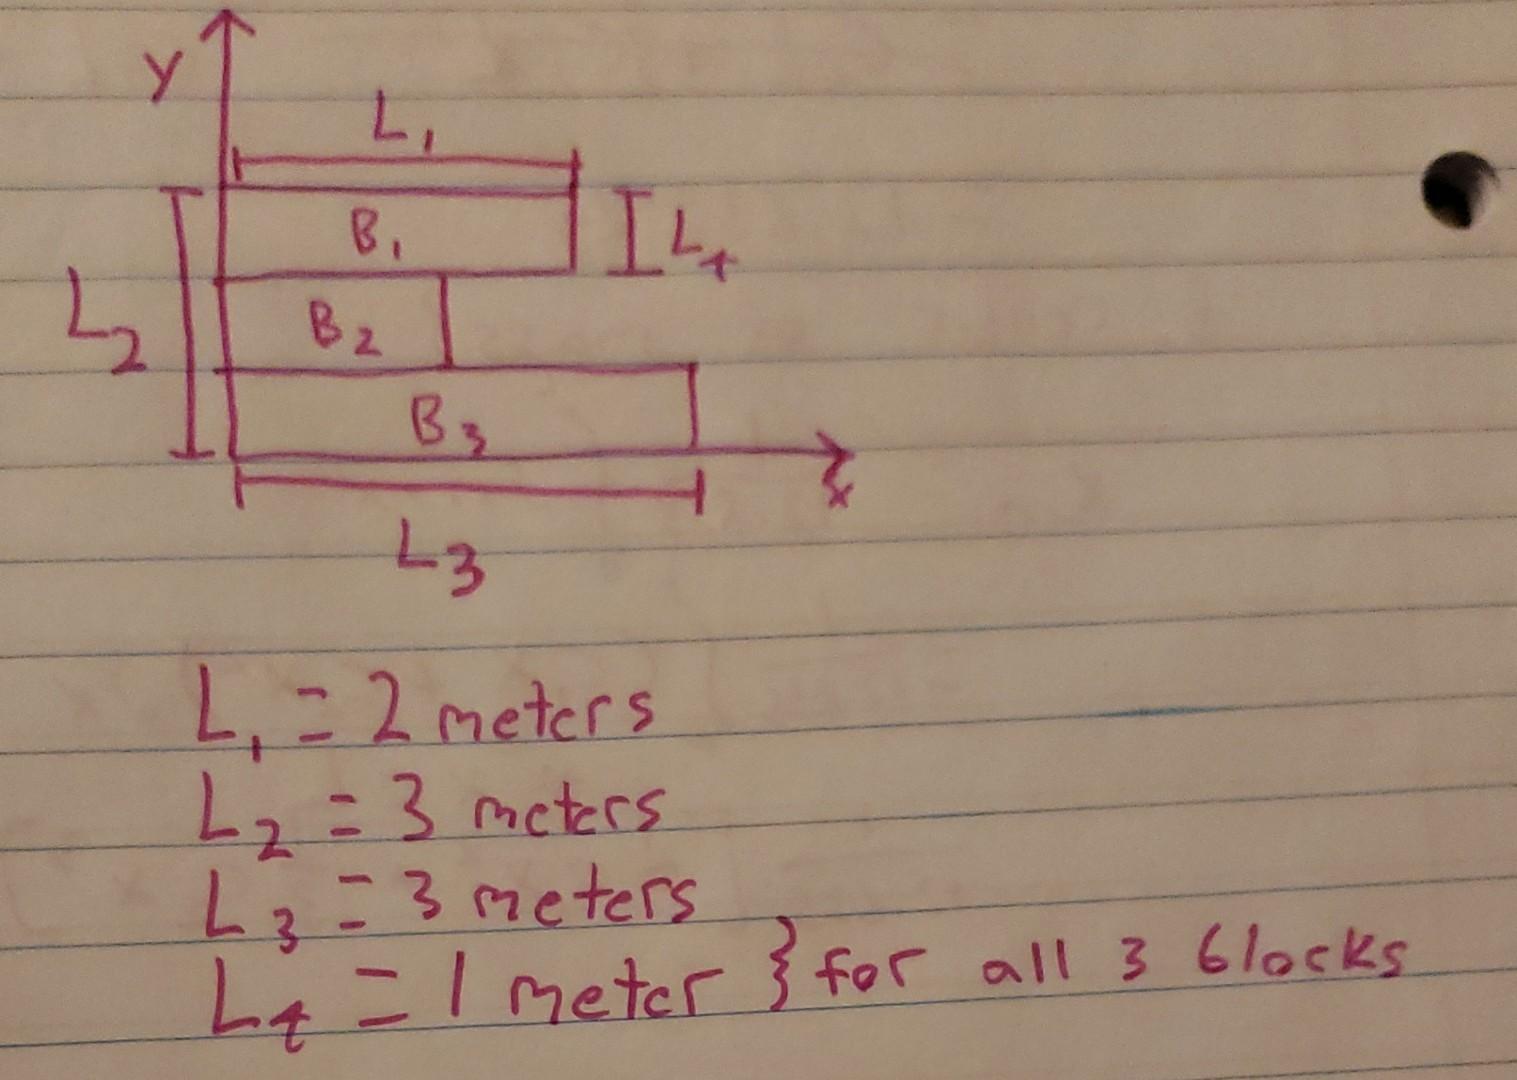 Y
L₁
B₁
L₄
L₂
B₂
B₃
x
L₃
L₁ = 2 meters
L₂ = 3 meters
L₃ = 3 meters
L₄ = 1 meter } for all 3 blocks